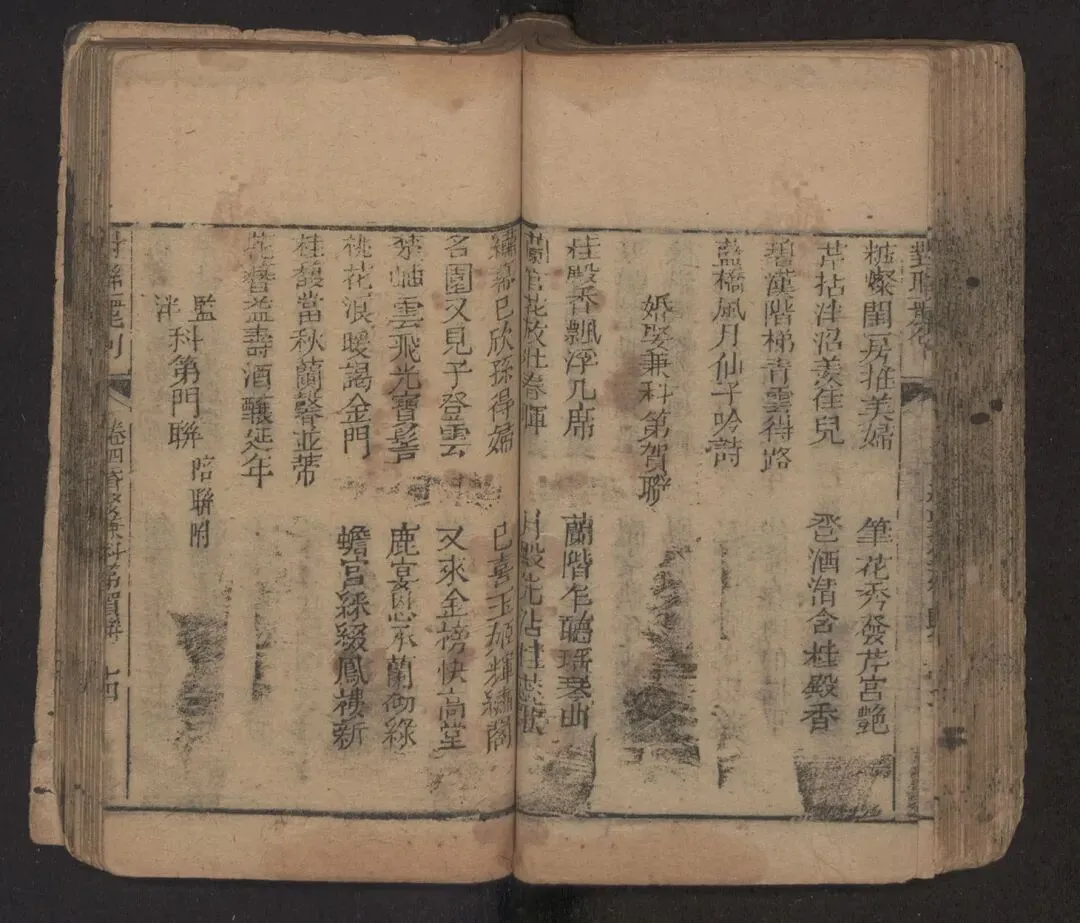 粧燦閨房推美婦 筆花秀發芹宮艷
芹拈泮沼羡佳兒 卺酒清含桂殿香
碧漢階梯青雲得路
藍橋風月仙子吟詩
婚娶兼科第賀聯
桂殿香飄浮几席 蘭階乍聽瑤琴曲
繡幕已欣孫得婦 已喜玉姬輝繡閣
名園又見子登雲 又來金榜快高堂
雲飛光寶髻 鹿宴恩承蘭砌綠
桃花浪暖謁金門 蟾宮綵綴鳳褸新
桂馥當秋蘭馨並蒂
益壽酒釀延年
監
泮
科第門聯 陪聯附
卷四 兼科第賀聯